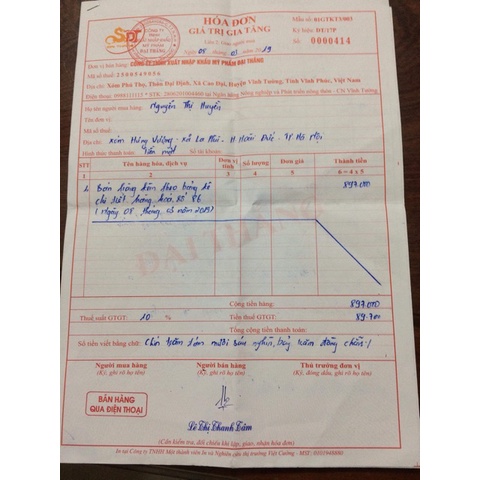 HÓA ĐƠN
GIÁ TRỊ GIA TĂNG
Mẫu số: 01GTKT3/003
Ký hiệu: DT/17P
Số: 0000414
Ngày 08 tháng 03 năm 2019
Đơn vị bán hàng: CÔNG TY TNHH XUẤT NHẬP KHẨU MỸ PHẨM ĐẠI TRÀNG
Mã số thuế: 2500549056
Địa chỉ: Xóm Phú Thọ, Thôn Đại Định, Xã Cao Đại, Huyện Vĩnh Tường, Tỉnh Vĩnh Phúc, Việt Nam
Họ tên người mua hàng: Nguyễn Thị Huyền
Tên đơn vị:
Mã số thuế:
Địa chỉ: Xóm Hùng Vương - Xã La Phù - H. Hoài Đức - TP Hà Nội
Hình thức thanh toán: Tiền mặt Số tài khoản:
STT Tên hàng hóa, dịch vụ Đơn vị tính Số lượng Đơn giá Thành tiền
1 2 3 4 5 6 = 4 x 5
1. Bán hàng kèm theo bảng kê 897.000
chi tiết hàng hóa số 86
(Ngày 08 tháng 03 năm 2019)
Cộng tiền hàng: 897.000
Thuế suất GTGT: 10 % Tiền thuế GTGT: 89.700
Tổng cộng tiền thanh toán:
Số tiền viết bằng chữ: Chín trăm tám mươi sáu nghìn, bảy trăm đồng chẵn./
Người mua hàng Người bán hàng Thủ trưởng đơn vị
(Ký, ghi rõ họ tên) (Ký, ghi rõ họ tên) (Ký, đóng dấu, ghi rõ họ tên)
BÁN HÀNG
QUA ĐIỆN THOẠI
Lê Thị Thanh Tâm
(Cần kiểm tra, đối chiếu khi lập, giao, nhận hóa đơn)